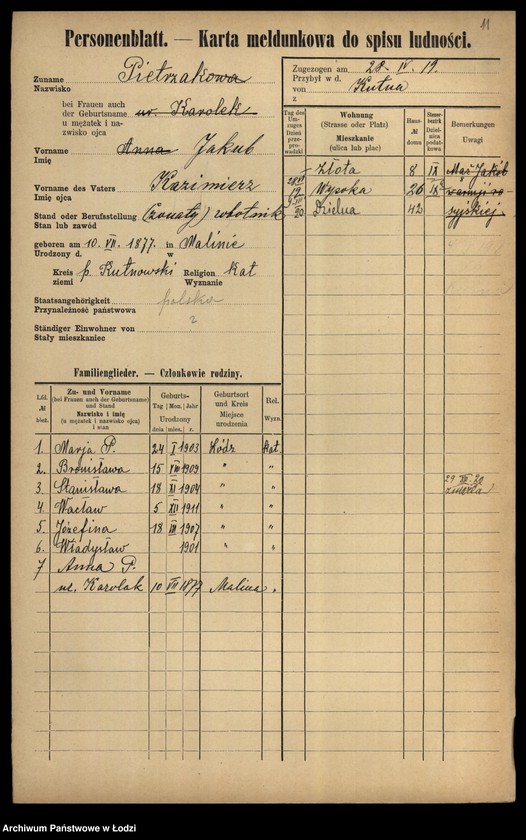 11
Personenblatt. — Karta meldunkowa do spisu ludności.
Zuname
Nazwisko
Pietrzakowa
bei Frauen auch
der Geburtsname
u mężatek i na-
zwisko ojca
ur. Karolak
Vorname
Imię
Anna Jakub
Vorname des Vaters
Imię ojca
Kazimierz
Stand oder Berufsstellung
Stan lub zawód
(żonaty) robotnik
geboren am 10. VII. 1877. in Malinie
Urodzony d. w
Kreis
ziemi
p. Kutnowski
Religion
Wyznanie
Kat
Staatsangehörigkeit
Przynależność państwowa
polska
Ständiger Einwohner von
Stały mieszkaniec
Zugezogen am
Przybył w d.
28. IV. 19.
von
z
Kutna
Tag des
Um-
zuges
Dzień
prze-
prowadzki
Wohnung
(Strasse oder Platz)
Mieszkanie
(ulica lub plac)
Haus-
№
domu
Steuer-
bezirk
Dzielnica
podatkowa
Bemerkungen
Uwagi
Złota 8 IX Mąż Jakób
19 Wysoka 26 IX w armji ro-
20 Dzielna 42 syjskiej.
Familienglieder. — Członkowie rodziny.
Lfd.
№
bież.
Zu- und Vorname
(bei Frauen auch der Geburtsname)
und Stand
Nazwisko i imię
(u mężatek i nazwisko ojca)
i stan
Geburts-
Tag Mon. Jahr
Urodzony
dnia mies. r.
Geburtsort
und Kreis
Miejsce
urodzenia
Rel.
Wyzn.
1. Marja P. 24 I 1903 Łódz Kat.
2. Bronisława 15 VIII 1909 " "
3. Stanisława 18 XI 1904 " "
29 20
zmarła
4. Wacław 5 XII 1911 " "
5. Józefina 18 III 1907 " "
6. Władysław 1901 " "
7 Anna P.
ur. Karolak 10 VII 1877 Malina "
Archiwum Państwowe w Łodzi